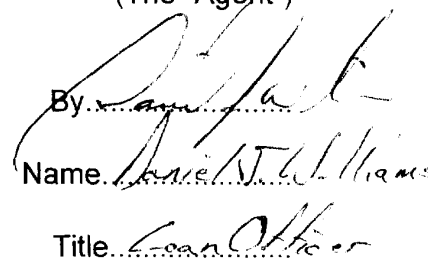 (The "Agent")
By
Name Daniel J. Williams
Title Loan Officer